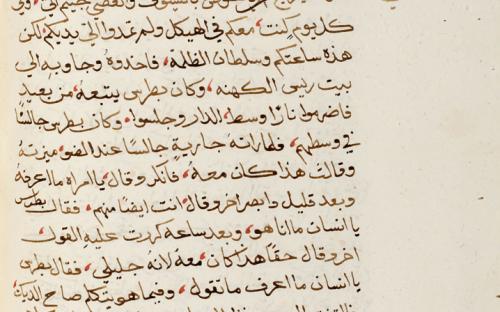 كل يوم كنت معكم في الهيكل ولم تمدوا الي يديكم لكن
هذه ساعتكم وسلطان الظلمة، فاخدوه وجاوا به الي
بيت رييس الكهنه، وكان بطرس يتبعه من بعيد
فاضرموا نارًا وسط الدار وجلسوا، وكان بطرس جالسًا
في وسطهم، فلما راته جارية جالسًا عند الضو ميزته
وقالت هذا كان معه، فانكر وقال يا امراه ما اعرفه
وبعد قليل وابصر اخر وقال انت ايضًا منهم، فقال بطرس
يا انسان ما انا هو، وبعد ساعه كررت عليه القول
اخر وقال حقًا هذا كان معه لانه جليلي، فقال بطرس
يا انسان ما اعرف ما تقول، وفيما هو يتكلم صاح الديك